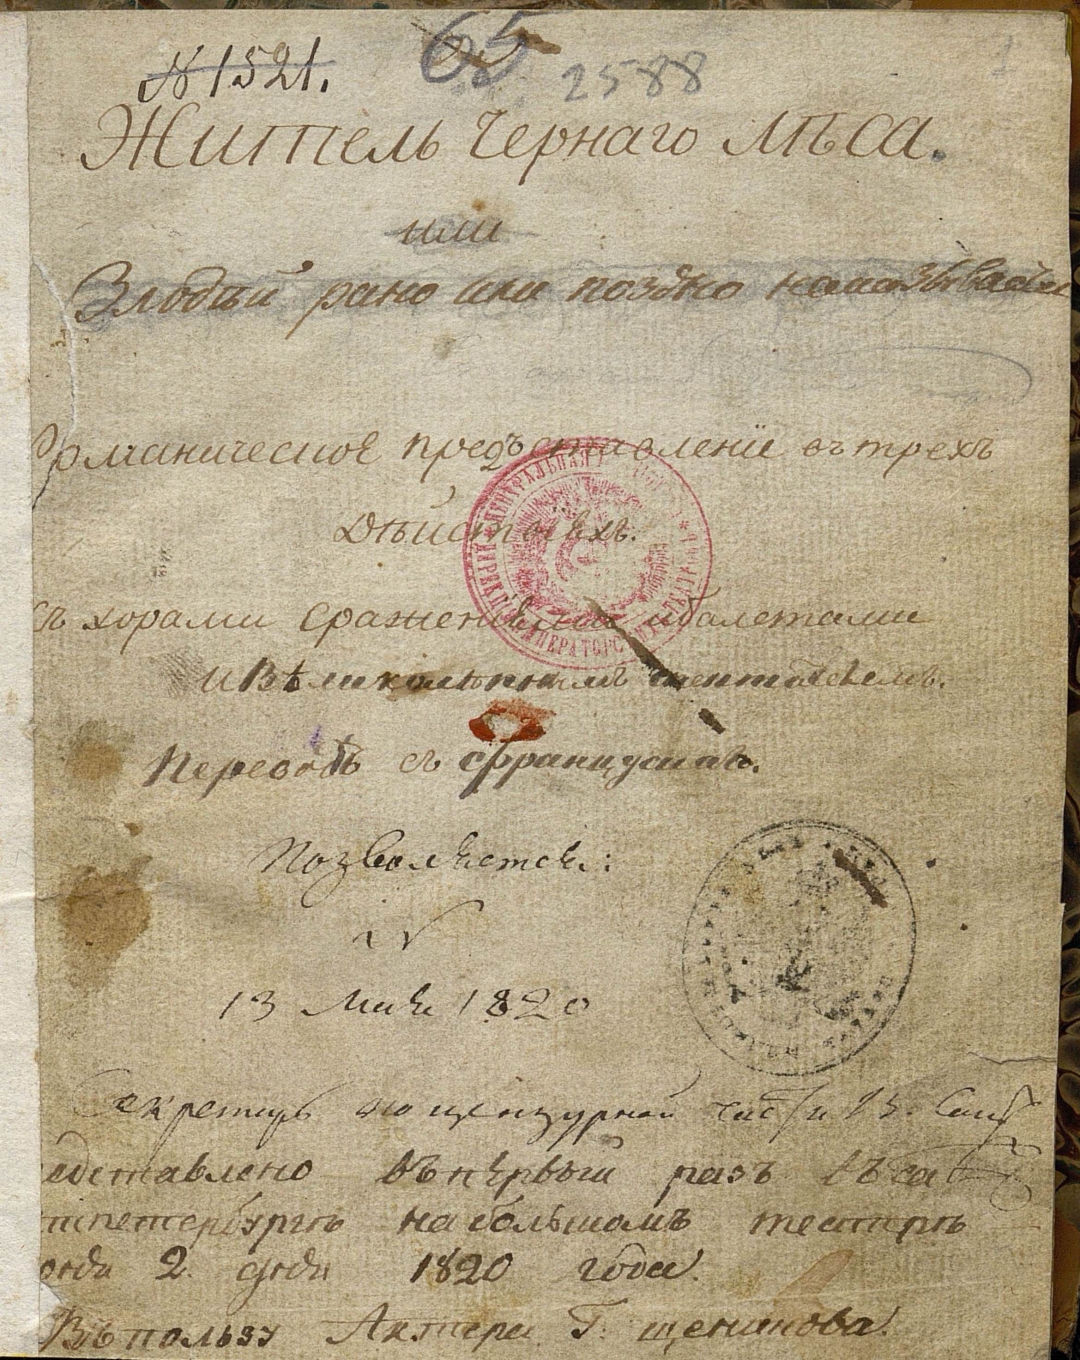 № 1521.
65
2588
Житель Чернаго лѣса.
или
Злодѣй рано или поздно наказывается
Романическое предъставленіе въ трехъ
Дѣйствіяхъ.
съ хорами сраженіями и балетами
и Вѣликолѣпнымъ
Переводъ съ французскаго.
Позволяется:
13 Мая 1820
Секретарь по цензурной части
едставлено въ первый разъ въ Са
тпетербургѣ на большомъ театрѣ
2. 1820 года.
Въ пользу Актера Г. щеникова.